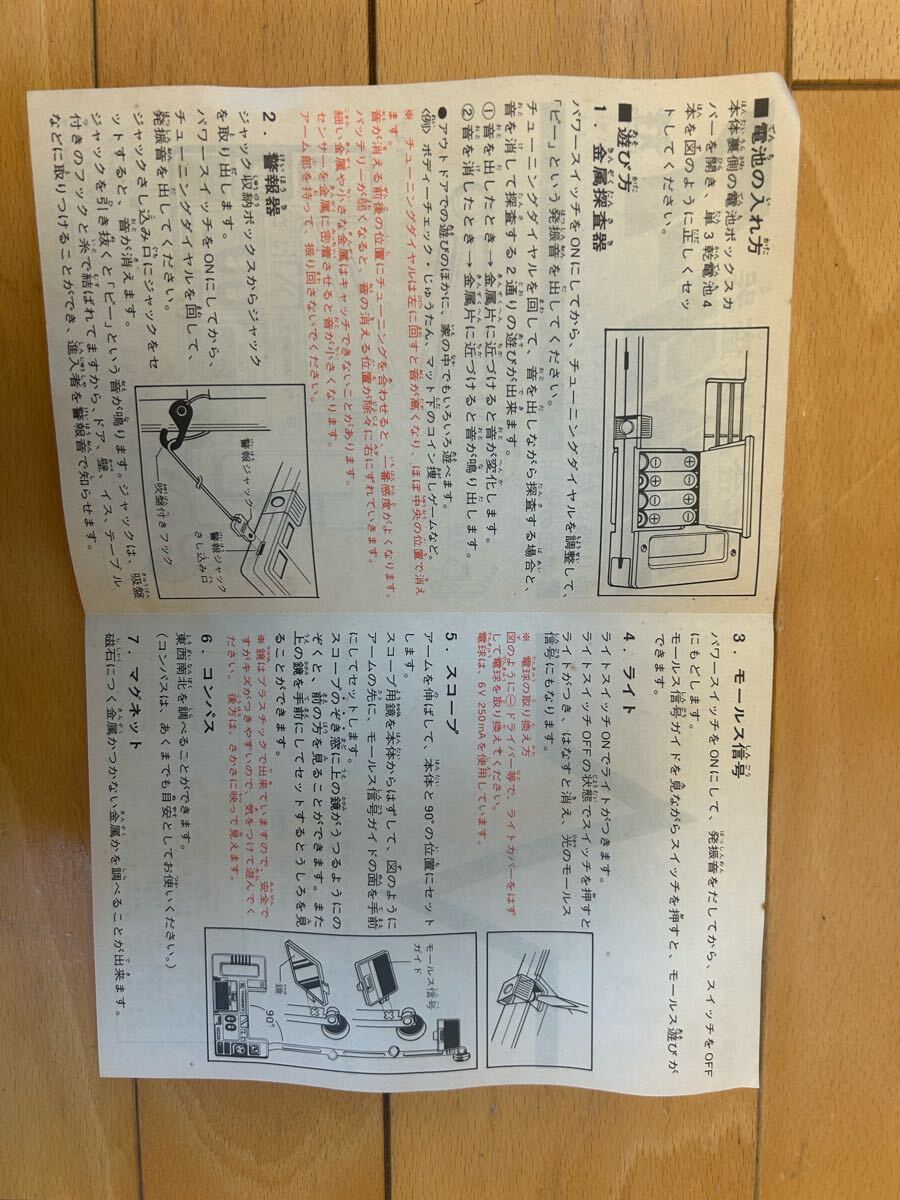 ■電池の入れ方
本体裏側の電池ボックスカ
バーを開き、単3乾電池4
本を図のように正しくセッ
トしてください。
■遊び方
1．金属探査器
パワースイッチをONにしてから、チューニングダイヤルを調整して、
「ピー」という発振音を出してください。
チューニングダイヤルを回して、音を出しながら探査する場合と、
音を消して探査する2通りの遊びが出来ます。
①音を出したとき→金属片に近づけると音が変化します。
②音を消したとき→金属片に近づけると音が鳴り出します。
●アウトドアでの遊びのほかに、家の中でもいろいろ遊べます。
〈例〉ボディーチェック・じゅうたん、マット下のコイン捜しゲームなど。
※ チューニングダイヤルは左に回すと音が高くなり、ほぼ中央の位置で消え
ます。
音が消える前後の位置にチューニングを合わせると、一番感度がよくなります。
バッテリーが弱くなると、音の消える位置が除々に右にずれていきます。
細い金属や小さな金属はキャッチできないことがあります。
センサーを金属に密着させると音が小さくなります。
アーム部を持って、振り回さないでください。
2．警報器
ジャック収納ボックスからジャック
を取り出します。
パワースイッチをONにしてから、
チューニングダイヤルを回して、
発振音を出してください。
ジャックさし込み口にジャックをセ
ットすると、音が消えます。
ジャックを引き抜くと「ピー」という音が鳴ります。ジャックは、吸盤
付きのフックと糸で結ばれてますから、ドア、壁、イス、テーブル
などに取りつけることができ、進入者を警報音で知らせます。
警報ジャック
警報ジャック
さし込み口
吸盤付きフック
3．モールス信号
パワースイッチをONにして、発振音をだしてから、スイッチをOFF
にもどします。
モールス信号ガイドを見ながらスイッチを押すと、モールス遊びが
できます。
4．ライト
ライトスイッチONでライトがつきます。
ライトスイッチOFFの状態でスイッチを押すと
ライトがつき、はなすと消え、光のモールス
信号にもなります。
※ 電球の取り換え方
図のように⊖ドライバー等で、ライトカバーをはず
して電球を取り換えてください。
電球は、6V 250mAを使用しています。
5．スコープ
アームを伸ばして、本体と90°の位置にセット
します。
スコープ用鏡を本体からはずして、図のように
アームの先に、モールス信号ガイドの面を手前
にしてセットします。
スコープのぞき窓に上の鏡がうつるようにの
ぞくと、前の方を見ることができます。また
上の鏡を手前にしてセットするとうしろを見
ることができます。
※鏡はプラスチックで出来ていますので、安全で
すがキズがつきやすいので、気をつけて遊んでく
ださい。 後方は、さかさに映って見えます。
モールス信号
ガイド
鏡
90°
6．コンパス
東西南北を調べることができます。
（コンパスは、あくまでも目安としてお使いください。）
7．マグネット
磁石につく金属かつかない金属かを調べることが出来ます。